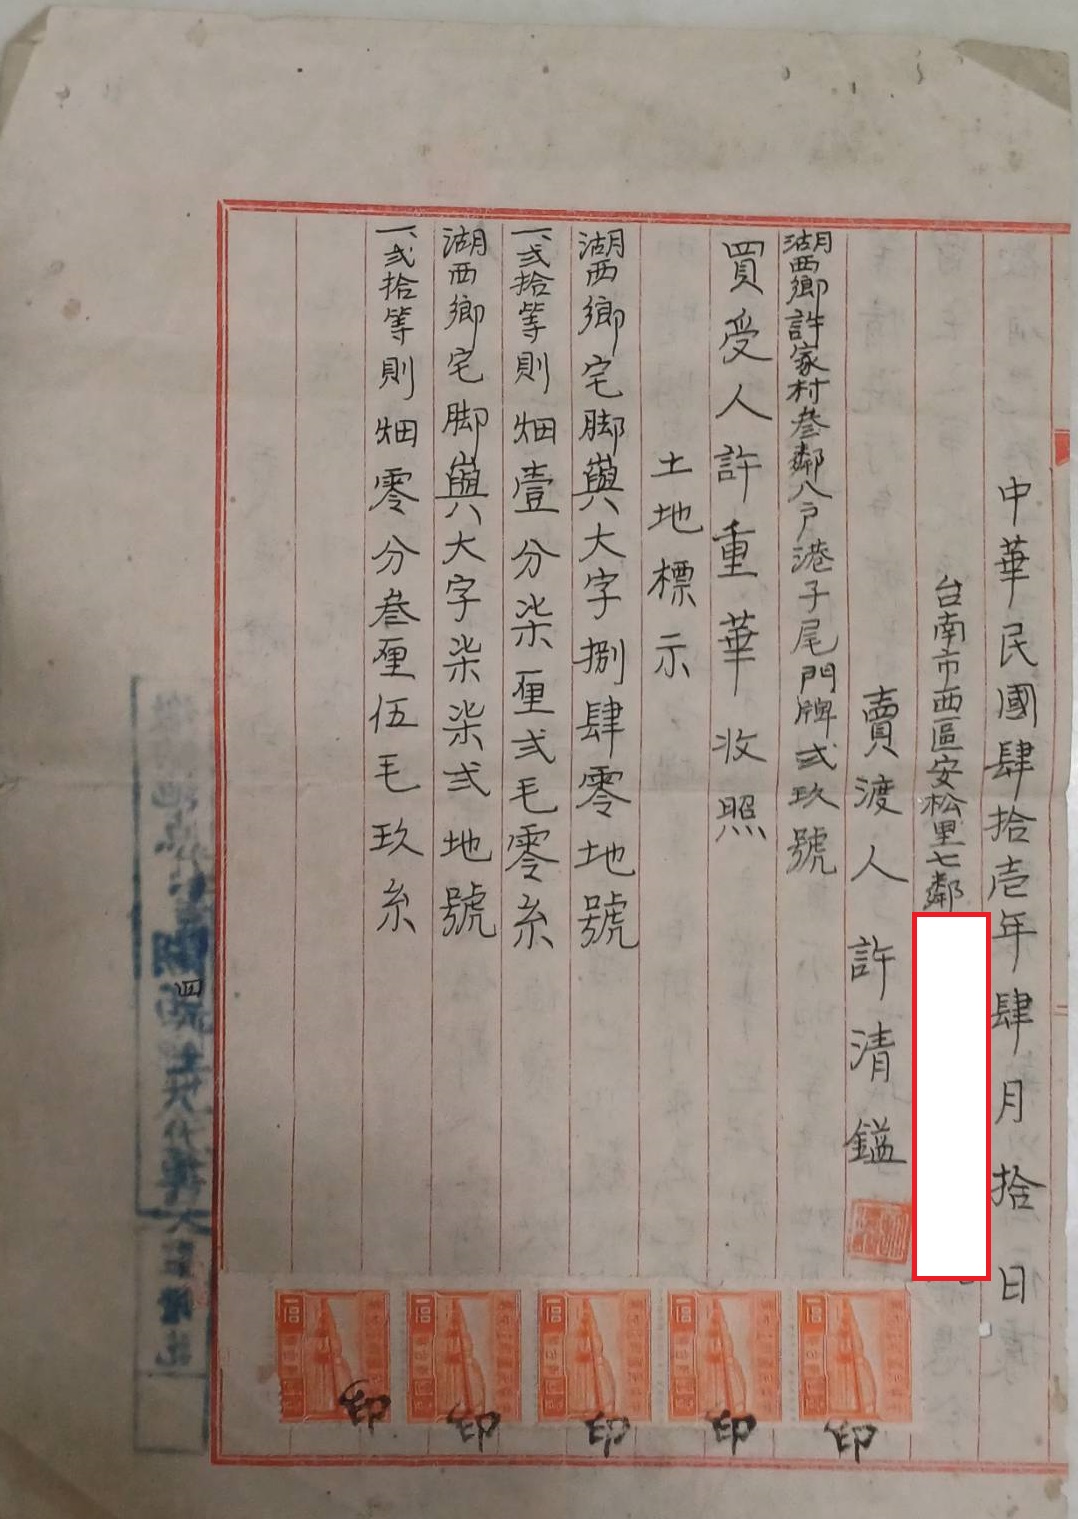 中華民國肆拾壱年肆月拾日
台南市西區安松里七鄰
賣渡人許清鎰
湖西鄉許家村叁鄰八戶港子尾門牌弍玖號
買受人許重華收照
土地標示
湖西鄉宅脚嶼大字捌肆零地號
一、弍拾等則畑壹分柒厘弍毛零糸
湖西鄉宅脚嶼大字柒柒弍地號
一、弍拾等則畑零分叁厘伍毛玖糸
四
印
印
印
印
印